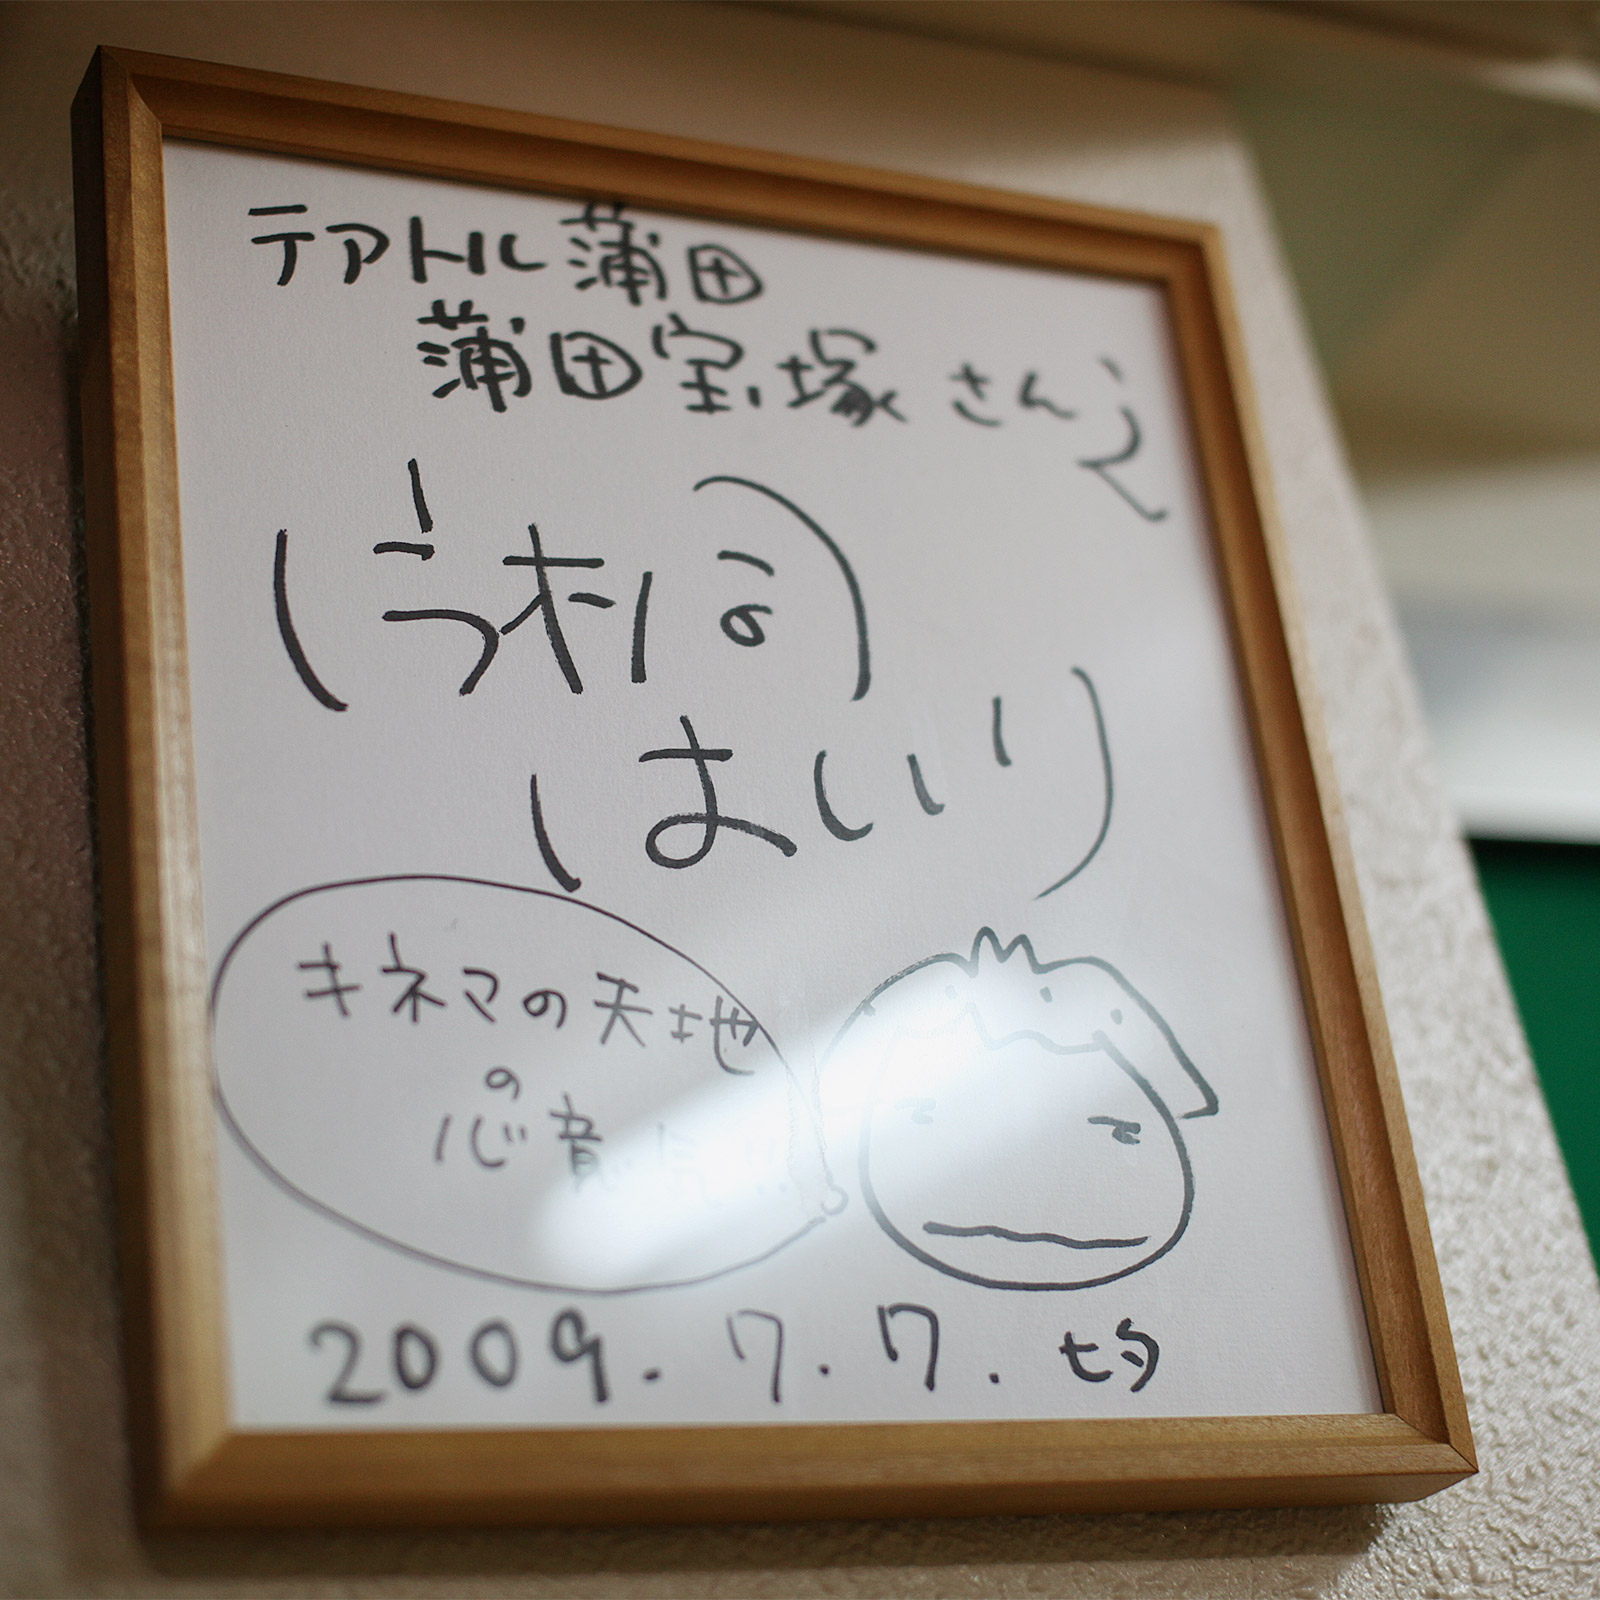 テアトル蒲田
蒲田宝塚さんえ
片桐
はいり
キネマの天地
の
心意気!!
2009.7.7.七夕